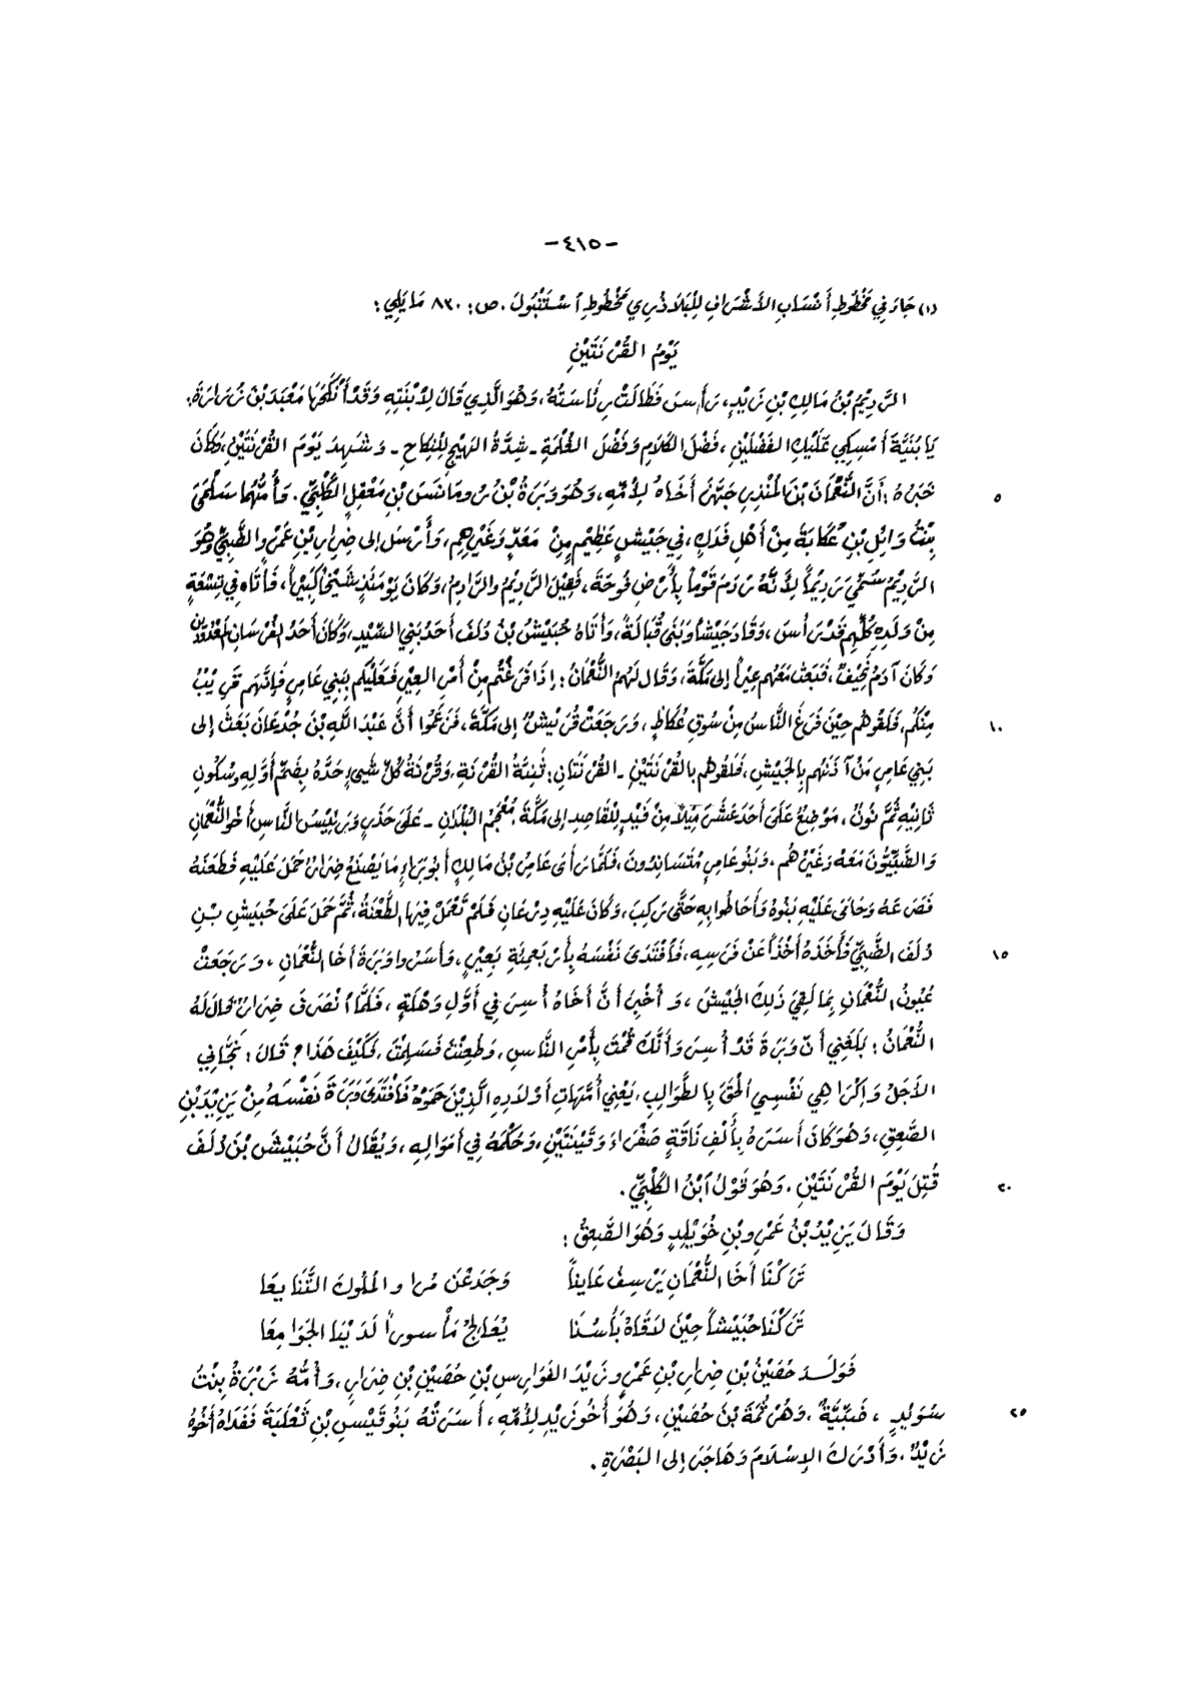 -٤١٥-
(١) جَاءَ فِي مَخْطُوطِ أَنْسَابِ الأَشْرَافِ لِلْبَلَاذُرِي مَخْطُوطِ اسْتَنْبُولَ. ص: ٨٣٠ مَا يَلِي:
يَوْمُ القُرْنَتَيْنِ
الرَّدِيْمُ بْنُ مَالِكِ بْنِ زَيْدٍ، رَأَسَ فَطَالَتْ رِئَاسَتُهُ، وَهُوَ الَّذِي قَالَ لِابْنَتِهِ وَقَدْ أَنْكَحَهَا مَعْبَدَ بْنَ زُرَارَةَ:
يَا بُنَيَّةَ أَمْسِكِي عَلَيْكِ الفَضْلَيْنِ، فَضْلَ الكَلَامِ وَفَضْلَ الغُلْمَةِ - شِدَّةُ الهَيْجِ لِلنِّكَاحِ - وَشَهِدَ يَوْمَ القُرْنَتَيْنِ، وَكَانَ
٥ خَبَرُهُ: أَنَّ النُّعْمَانَ بْنَ المُنْذِرِ جَهَّزَ أَخَاهُ لِأُمِّهِ، وَهُوَ وَبَرَةُ بْنُ رُومَانَسَ بْنِ مَعْقِلٍ الكَلْبِيِّ. وَأُمُّهُمَا سَلْمَىٰ
بِنْتُ وَائِلِ بْنِ عُكَابَةَ مِنْ أَهْلِ فَدَكٍ، فِي جَيْشٍ عَظِيْمٍ مِنْ مَعَدٍّ وَغَيْرِهِم، وَأَرْسَلَ إلى ضِرَارِ بْنِ عَمْرٍو الضَّبِّيِّ وَهُوَ
الرَّدِيْمُ سُمِّيَ رَدِيْمَاً لِأَنَّهُ رَدَمَ قَوْمَاً بِأَرْضٍ فُوْحَةَ، فَقِيْلَ الرَّدِيْمُ والرَّادِمُ، وَكَانَ يَوْمَئِذٍ شَيْخَاً كَبِيْراً، فَأَتَاه فِي تِسْعَةٍ
مِنْ وَلَدِهِ كُلُّهُم قَدْ رَأَسَ، وَقَادَ جَيْشَاً وَبَنَى قُبَالَةُ، وَأَتَاهُ حُبَيْشُ بْنُ دُلَفَ أَحَدُ بَنِي السِّيْدِ، وَكَانَ أَحَدُ الفُرْسَانِ المَعْدُوْدِيْنَ
وَكَانَ آدَمُ نَحِيْفٌ، فَبَعَثَ مَعَهُم عِيْراً إلى مَكَّةَ، وَقَالَ لَهُم النُّعْمَانُ: إذَا فَرَغْتُم مِنْ أَمْرِ العِيْرِ فَعَلَيْكُم بِبَنِي عَامِرٍ فَإنَّهُم قَرِيْبٌ
١٠ مِنْكُم، فَلَقُوهُم حِيْنَ فَرَغَ النَّاسُ مِنْ سُوقِ عُكَاظٍ، وَرَجَعَتْ قُرَيْشٌ إلى مَكَّةَ، فَزَعَمُوا أَنَّ عَبْدَ اللَّهِ بْنَ جُدْعَانَ بَعَثَ إلى
بَنِي عَامِرٍ مَنْ آذَنَهُم بِالجَيْشِ، فَلَقُوهُم بِالقُرْنَتَيْنِ - القُرْنَتَانِ: تَثْنِيَةُ القُرْنَةِ، وَقُرْنَةُ كُلِّ شَيءٍ حَدُّهُ بِضَمِّ أَوَّلِهِ وَسُكُونِ
ثَانِيْهِ ثُمَّ نُونٌ، مَوْضِعٌ عَلَى أَحَدَ عَشَرَ مِيْلاً مِنْ فَيْدٍ لِلْقَاصِدِ إلى مَكَّةَ، مُعْجَمُ البُلْدَانِ - عَلَى حَذَرٍ وَرَئِيْسُ النَّاسِ أَخُو النُّعْمَانِ
وَالضَّبِّيُّونَ مَعَهُ وَغَيْرُهُم، وَبَنُو عَامِرٍ مُتَسَانِدُونَ، فَلَمَّا رَأَى عَامِرُ بْنُ مَالِكٍ أَبُو بَرَاءٍ مَا يَصْنَعُ ضِرَارٌ حَمَلَ عَلَيْهِ فَطَعَنَهُ
فَصَرَعَهُ وَحَامَى عَلَيْهِ بَنُوهُ وَأَحَاطُوا بِهِ حَتَّى رَكِبَ، وَكَانَ عَلَيْهِ دِرْعَانِ فَلَمْ تَعْمَلْ فِيْهَا الطَّعْنَةُ، ثُمَّ حَمَلَ عَلَى حُبَيْشِ بْنِ
١٥ دُلَفَ الضَّبِّيِّ فَأَخَذَهُ أَخْذَاً عَنْ فَرَسِهِ، فَافْتَدَى نَفْسَهُ بِأَرْبَعِمِئَةِ بَعِيْرٍ، وَأَسَرُوا وَبَرَةَ أَخَا النُّعْمَانِ، وَرَجَعَتْ
عُيُونُ النُّعْمَانِ بِمَا لَقِيَ ذَلِكَ الجَيْشَ، وَأُخْبِرَ أَنَّ أَخَاهُ أُسِرَ فِي أَوَّلِ وَهْلَةٍ، فَلَمَّا انْصَرَفَ ضِرَارٌ قَالَ لَهُ
النُّعْمَانُ: بَلَغَنِي أَنَّ وَبَرَةَ قَدْ أُسِرَ وَأَنَّكَ قُمْتَ بِأَمْرِ النَّاسِ، وَطُعِنْتَ فَسَلِمْتَ، فَكَيْفَ هَذَا؟ قَالَ: نَجَّانِي
الأَجَلُ وَإكْرَاهِي نَفْسِي الحُقَّ بِالطَّوَالِبِ، يَعْنِي أُمَّهَاتِ أَوْلَادِهِ الَّذِيْنَ حَمَوْهُ فَافْتَدَى وَبَرَةَ نَفْسَهُ مِنْ يَزِيْدَ بْنِ
الصَّعِقِ، وَهُوَ كَانَ أَسَرَهُ بِأَلْفِ نَاقَةٍ صَفْرَاءَ وَقَيْنَتَيْنِ، وَحُكْمُهُ فِي أَمْوَالِهِ، وَيُقَالُ أَنَّ حُبَيْشَ بْنَ دُلَفَ
٢٠ قُتِلَ يَوْمَ القُرْنَتَيْنِ. وَهُوَ قَوْلُ ابْنُ الكَلْبِيِّ.
وَقَالَ يَزِيْدُ بْنُ عَمْرِو بْنِ خُوَيْلِدٍ وَهُوَ الصَّعِقُ:
تَرَكْنَا أَخَا النُّعْمَانِ يَرْسِفُ عَانِياً وَجَدَّعْنَ مُرَّا والمُلُوكَ الصَّنَائِعَا
تَرَكْنَا حُبَيْشَاً حِيْنَ لَاقَاهُ بَأْسُنَا يُعَالِجُ مَأْسوراً لَدَيْنَا الجَوَامِعَا
فَوَلَدَ حُصَيْنُ بْنِ ضِرَارِ بْنِ عَمْرٍو زَيْدَ الفَوَارِسِ بْنِ حُصَيْنِ بْنِ ضِرَارٍ، وَأُمُّهُ زَبْرَةُ بِنْتُ
٢٥ سُوَيْدٍ، ضَبِّيَّةٌ، وَهَرْثَمَةَ بْنَ حُصَيْنٍ، وَهُوَ أَخُو زَيْدٍ لِأُمِّهِ، أَسَرَتْهُ بَنُو قَيْسِ بْنِ ثَعْلَبَةَ فَفَدَاهُ أَخُوهُ
زَيْدٌ، وَأَدْرَكَ الإسْلَامَ وَهَاجَرَ إلى البَصْرَةِ.